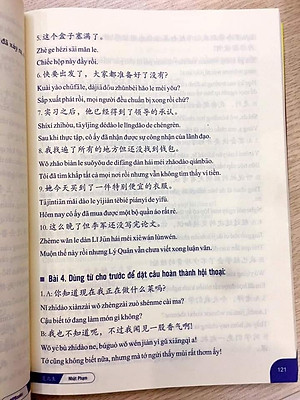 5. 这个盒子塞满了。
Zhè ge hézi sāi mǎn le.
Chiếc hộp này đầy rồi.
6. 快要出发了，大家都准备好了没有？
Kuài yào chūfā le, dàjiā dōu zhǔnbèi hǎo le méi yǒu?
Sắp xuất phát rồi, mọi người đều chuẩn bị xong rồi chứ?
7. 实习之后，他已经得到了领导的承认。
Shíxí zhīhòu, tā yǐjīng dédào le lǐngdǎo de chéngrèn.
Sau khi thực tập, cô ấy đã nhận được sự công nhận của lãnh đạo.
8. 我找遍了所有的地方但还没找到钱包。
Wǒ zhǎo biàn le suǒyǒu de dìfang dàn hái méi zhǎodào qiánbāo.
Tôi đã tìm khắp tất cả mọi nơi rồi nhưng vẫn không tìm thấy ví tiền.
9. 她今天买到了一件特别便宜的衣服。
Tā jīntiān mǎi dào le yí jiàn tèbié piányi de yīfu.
Hôm nay cô ấy đã mua được một bộ quần áo rất rẻ.
10. 这么晚了但李军还没写完论文。
Zhème wǎn le dàn Lǐ Jūn hái méi xiě wán lùnwén.
Muộn thế này rồi nhưng Lý Quân vẫn chưa viết xong luận văn.
Bài 4. Dùng từ cho trước để đặt câu hoàn thành hội thoại:
1. A: 你知道现在我正在做什么菜吗？
Nǐ zhīdào xiànzài wǒ zhèngzài zuò shénme cài ma?
Cậu biết tớ đang làm món gì không?
B: 我也不知道呢，不过我闻见一股香气啊！
Wǒ yě bù zhīdào ne, búguò wǒ wén jiàn yì gǔ xiāngqì a!
Tớ cũng không biết nữa, nhưng mà tớ ngửi thấy mùi rất thơm ấy!
Nhật Phạm
121